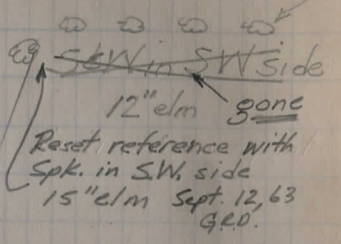 S&W in SW side
12" elm gone
Reset reference with
Spk. in S.W. side
15" elm Sept. 12, 63
G.R.D.